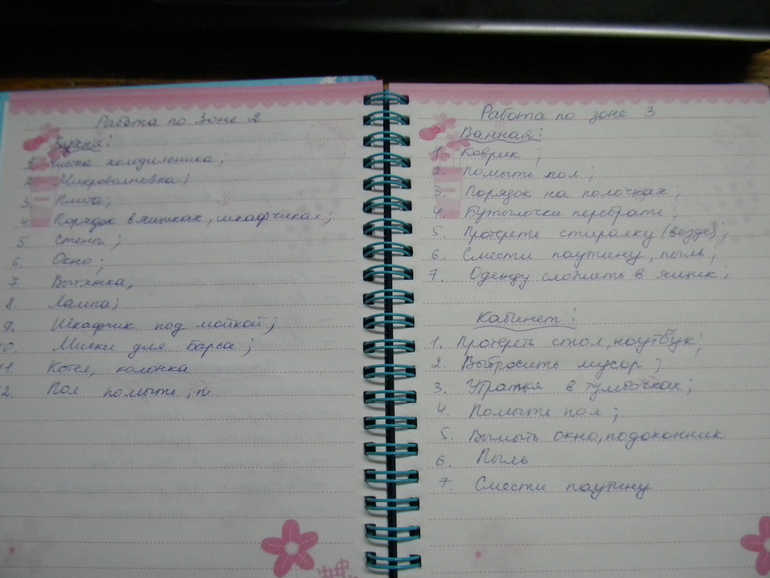 Работа по зоне 2
Кухня:
1. Чистка холодильника;
2. Микроволновка;
3. Плита;
4. Порядок в ящиках, шкафчиках;
5. Стены;
6. Окно;
7. Вытяжка,
8. Лампа;
9. Шкафчик под мойкой;
10. Миски для барса;
11. Котел, колонка
12. Пол помыть, п
Работа по зоне 3
Ванная:
1. Коврик;
2. Помыть пол;
3. Порядок на полочках;
4. Бутылочки перебрать;
5. Протереть стиралку (везде);
6. Смести паутину, пыль;
7. Одежду сложить в ящик;
Кабинет:
1. Протереть стол, ноутбук;
2. Выбросить мусор;
3. Убраться в тумбочках;
4. Помыть пол;
5. Вымыть окно, подоконник
6. Пыль
7. Смести паутину